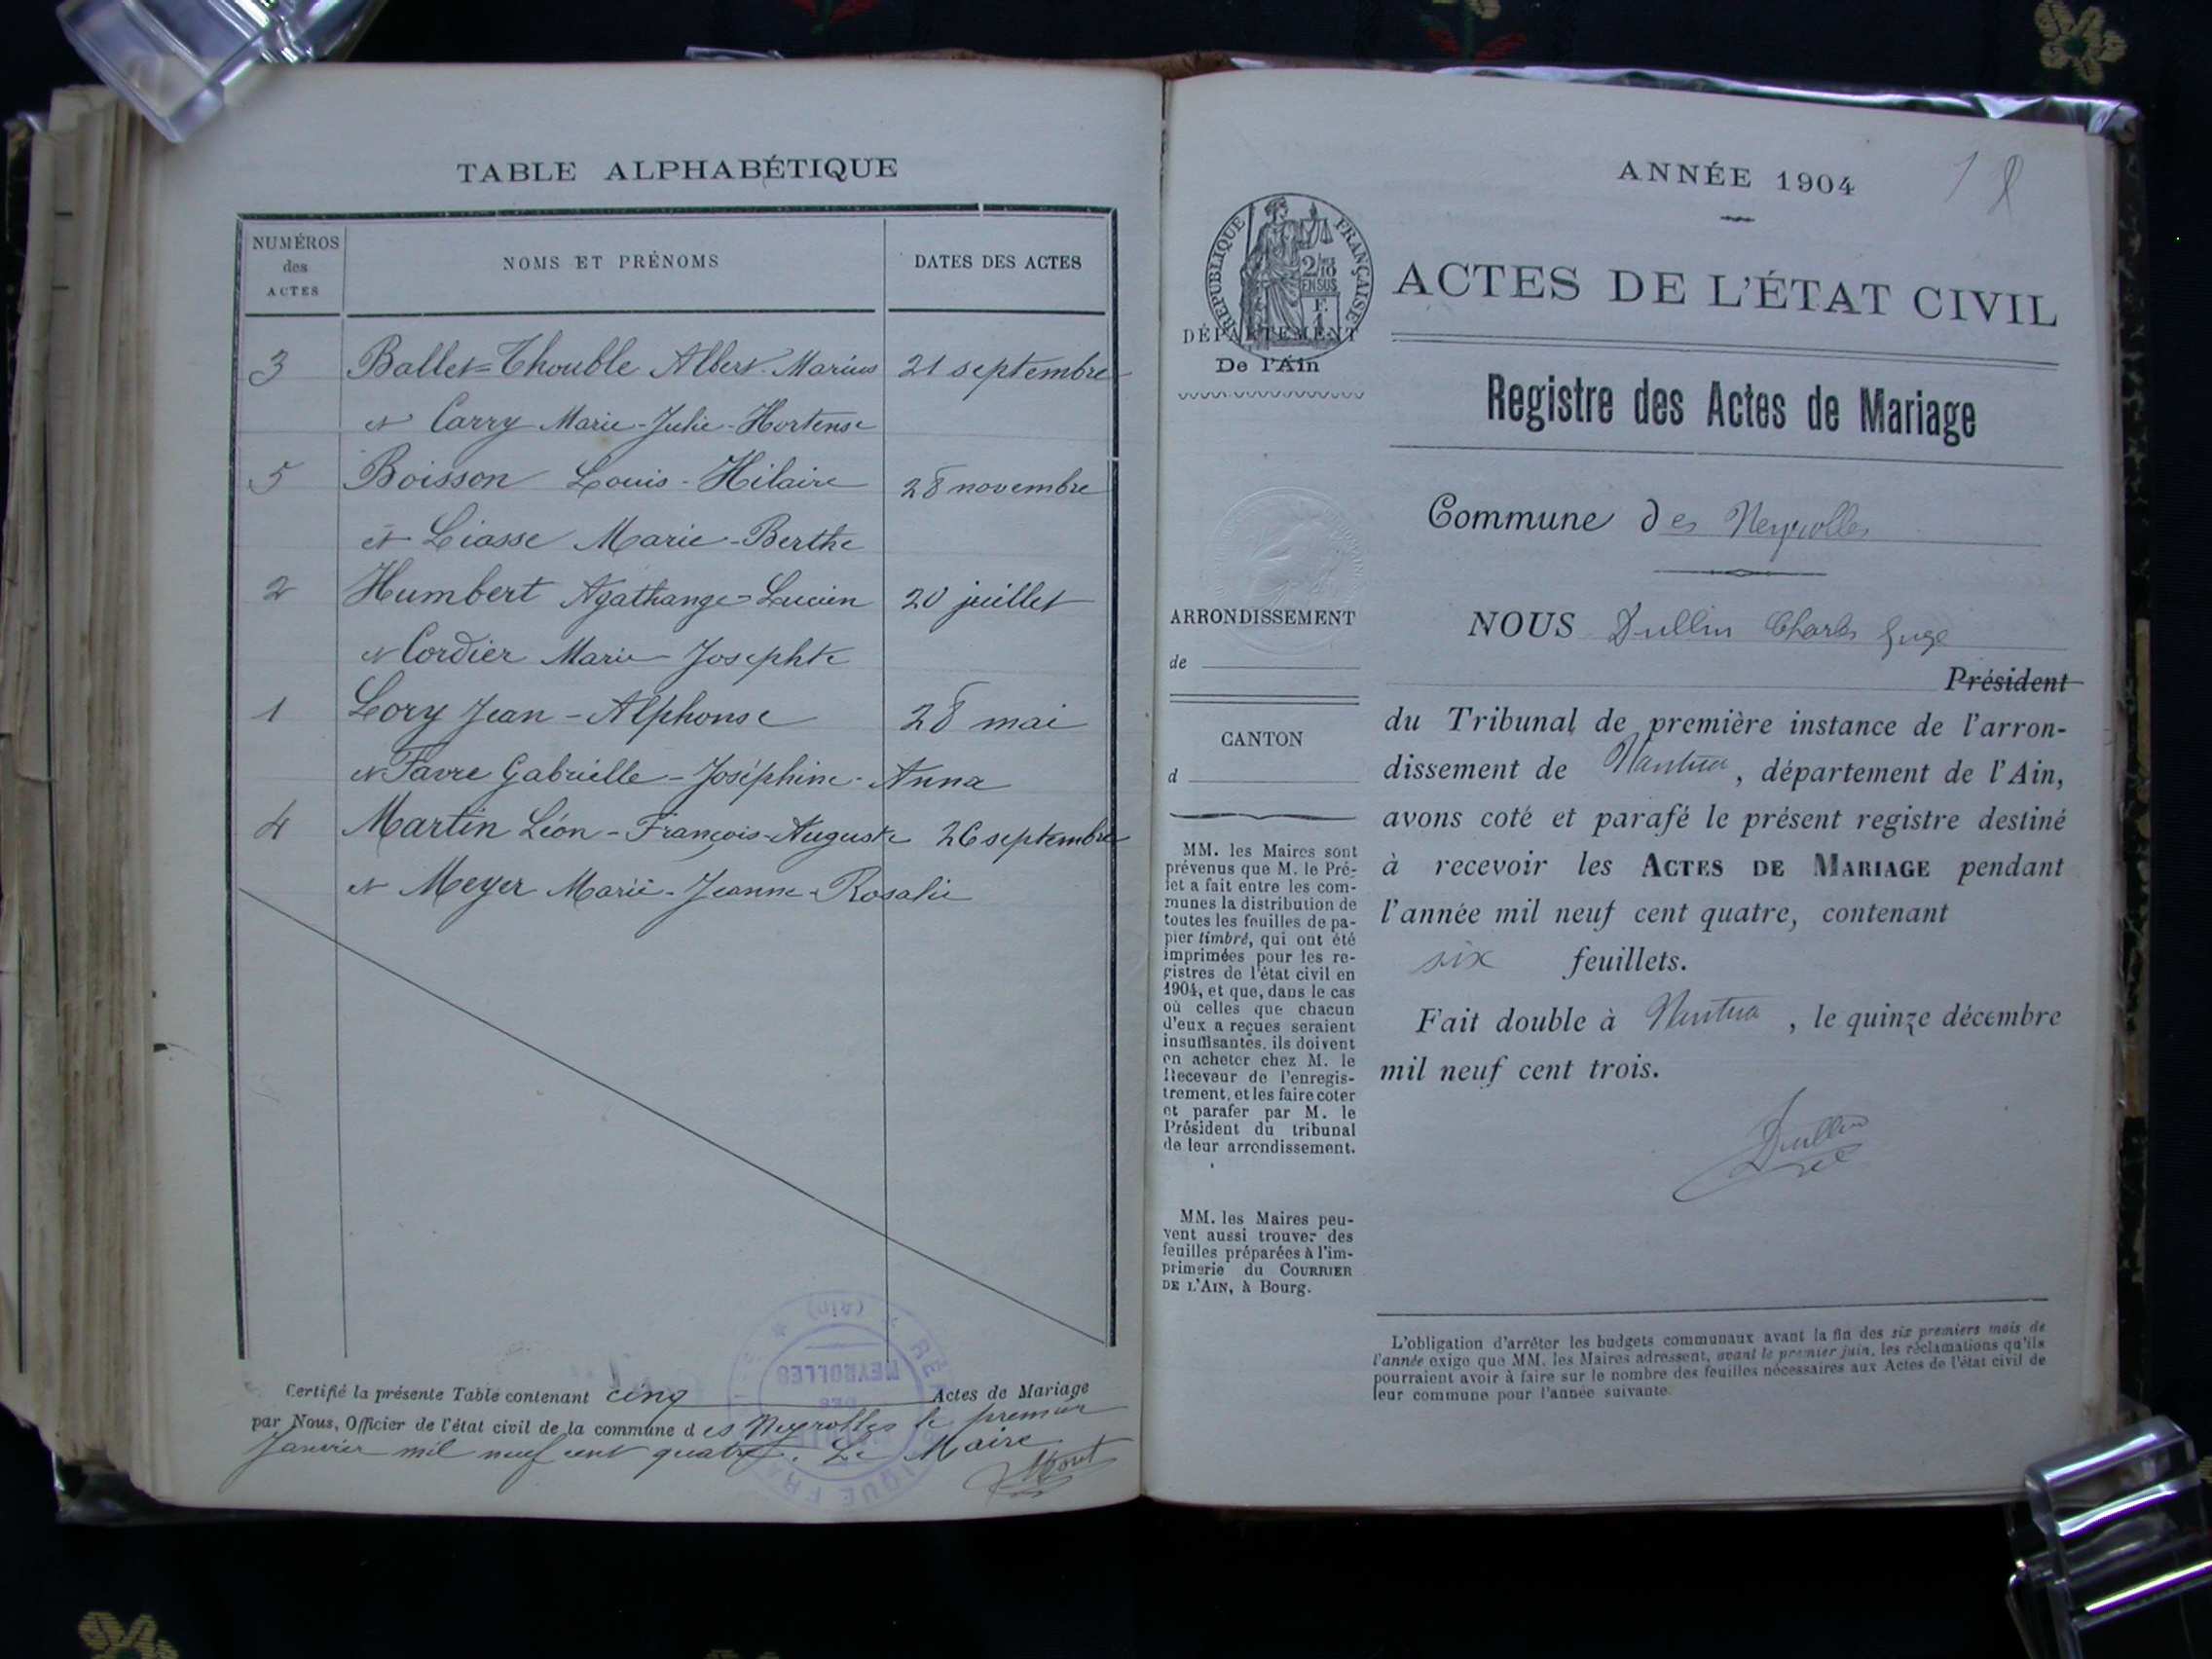 TABLE ALPHABÉTIQUE
NUMÉROS
des
ACTES
NOMS ET PRÉNOMS
DATES DES ACTES
3 Ballet=Thouble Albert-Marius 21 septembre
et Carry Marie-Julie-Hortense
5 Boisson Louis-Hilaire 28 novembre
et Liasse Marie-Berthe
2 Humbert Agathange-Lucien 20 juillet
et Cordier Marie Josephte
1 Lory Jean-Alphonse 28 mai
et Favre Gabrielle-Joséphine-Anna
4 Martin Léon-François-Auguste 26 septembre
et Meyer Marie-Jeanne-Rosalie
Certifié la présente Table contenant cinq Actes de Mariage
par Nous, Officier de l'état civil de la commune des Neyrolles le premier
Janvier mil neuf cent quatre. Le Maire
ANNÉE 1904
RÉPUBLIQUE FRANÇAISE
2/10
EN SUS
F.
1
DÉPARTEMENT
De l'Ain
ACTES DE L'ÉTAT CIVIL
Registre des Actes de Mariage
Commune des Neyrolles
ARRONDISSEMENT
de
CANTON
d
MM. les Maires sont
prévenus que M. le Pré-
fet a fait entre les com-
munes la distribution de
toutes les feuilles de pa-
pier timbré, qui ont été
imprimées pour les re-
gistres de l'état civil en
1904, et que, dans le cas
où celles que chacun
d'eux a reçues seraient
insuffisantes, ils doivent
en acheter chez M. le
Receveur de l'enregis-
trement, et les faire coter
et parafer par M. le
Président du tribunal
de leur arrondissement.
MM. les Maires peu-
vent aussi trouver des
feuilles préparées à l'im-
primerie du COURRIER
DE L'AIN, à Bourg.
NOUS Dullin Charles Juge
Président
du Tribunal de première instance de l'arron-
dissement de Nantua, département de l'Ain,
avons coté et parafé le présent registre destiné
à recevoir les ACTES DE MARIAGE pendant
l'année mil neuf cent quatre, contenant
six feuillets.
Fait double à Nantua, le quinze décembre
mil neuf cent trois.
Dullin
L'obligation d'arrêter les budgets communaux avant la fin des six premiers mois de
l'année exige que MM. les Maires adressent, avant le premier juin, les réclamations qu'ils
pourraient avoir à faire sur le nombre des feuilles nécessaires aux Actes de l'état civil de
leur commune pour l'année suivante.